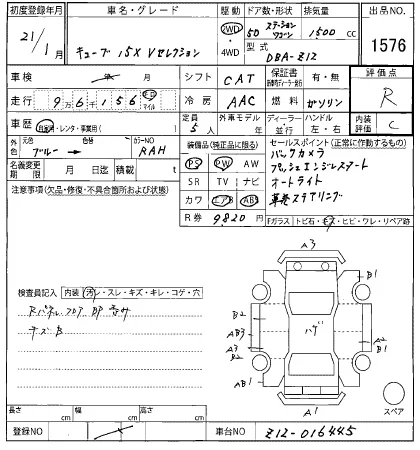 初度登録年月 車名・グレード 駆動 ドア数・形状 排気量 出品NO.
21/1月 キューブ 15X Vセレクション 2WD 4WD 5D ステーションワゴン 1500cc 1576
型式 DBA-Z12
車検 年 月 シフト CAT 保証書 有・無 評価点
走行 9万6千156 km マイル 冷房 AAC 燃料 ガソリン R
車歴 自家用・レンタ・事業用( ) 定員 5人 外車モデル 年 ディーラー 並行 ハンドル 左・右 内装評価 C
外色 元色 ブルー 色替 カラーNO RAH
装備品(純正品に限る)
PS PW AW
SR TV ナビ
カワ エアB ABS
R券 9820円
セールスポイント(正常に作動するもの)
バックカメラ
プッシュエンジンスタート
オートライト
革巻ステアリング
名義変更期限 月 日迄 積載 t
注意事項(欠品・修復・不具合箇所および状態)
Fガラス トビ石・キズ・ヒビ・ワレ・リペア跡
検査員記入 内装 汚レ・スレ・キズ・キレ・コゲ・穴
キズB
A3
B1
B2
AB3
A3
B2
AB1
ハゲ
A2
B1
A1
スペア
長さ cm 幅 cm 高さ cm
登録NO 車台NO Z12-016445